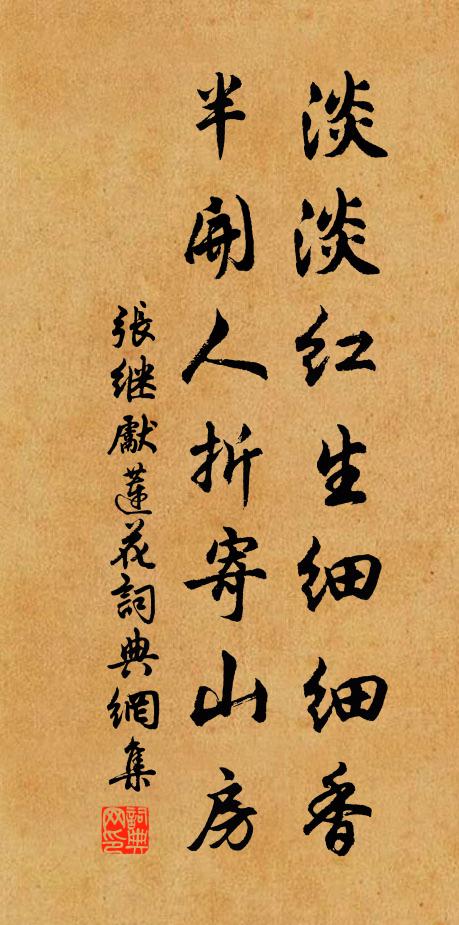 淡淡红生细细香
半開人折寄山房
張继獻蓮花詞典網集
詞典网印